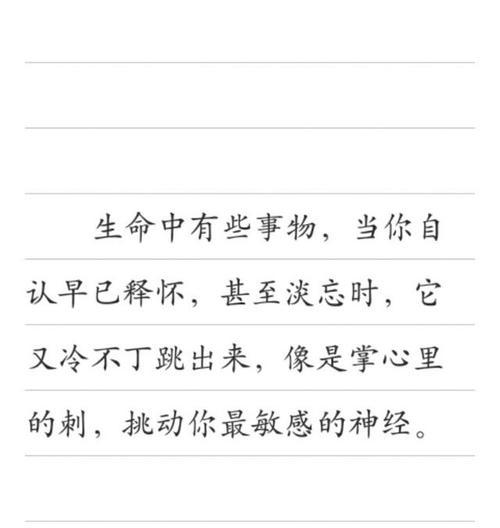 生命中有些事物，当你自
认早已释怀，甚至淡忘时，它
又冷不丁跳出来，像是掌心里
的刺，挑动你最敏感的神经。